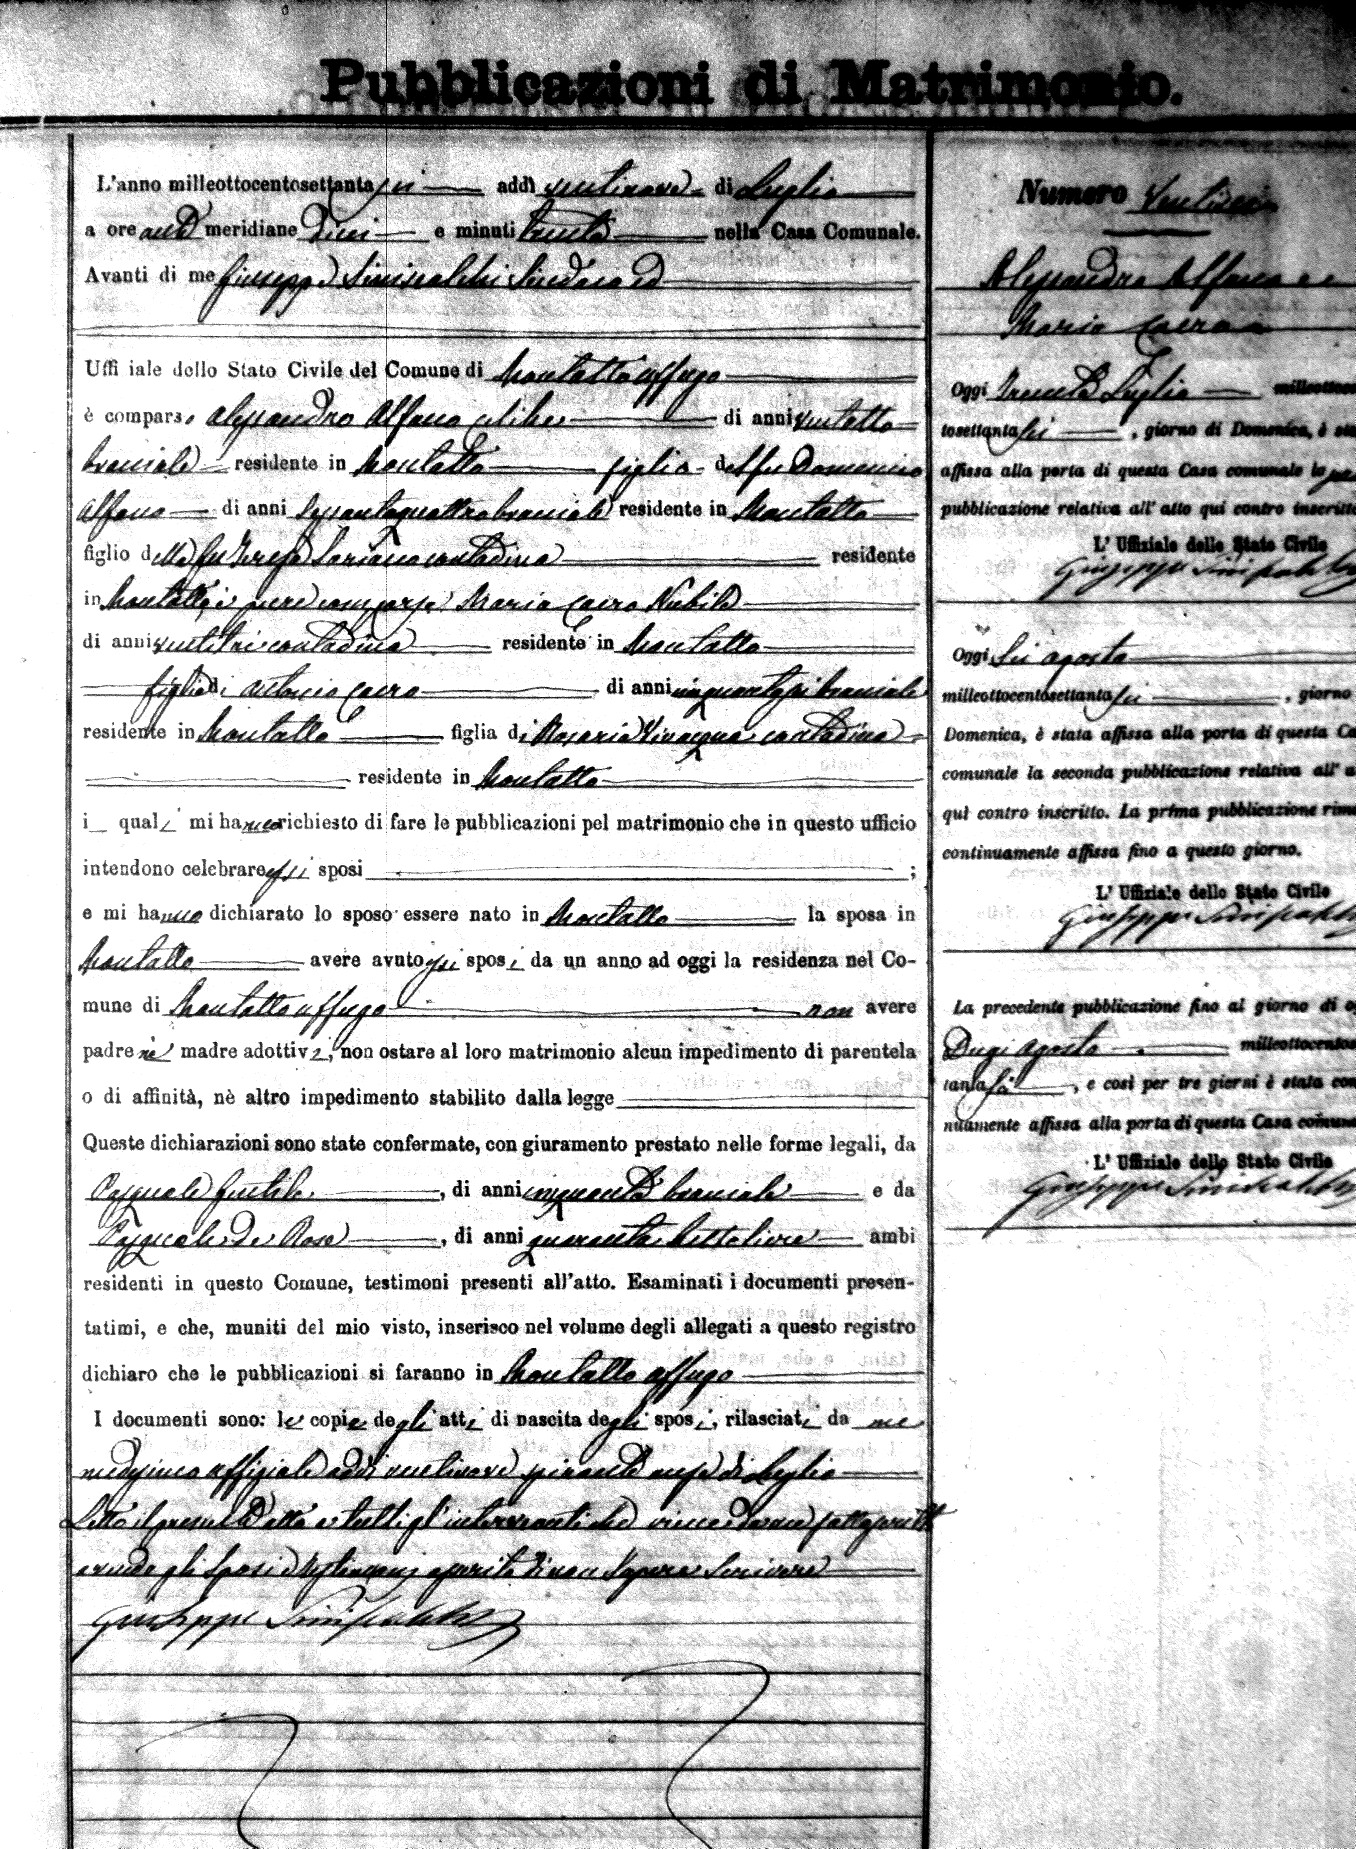 Pubblicazioni di Matrimonio.
L'anno milleottocentosettanta sei addì ventinove di Luglio
a ore anti meridiane dieci e minuti trenta nella Casa Comunale.
Avanti di me Giuseppe Siniscalchi Sindaco ed
Uffi iale dello Stato Civile del Comune di Montalto uffugo
è comparso Alessandro Alfano celibe di anni ventotto
bracciale residente in Montalto figlio del fu Domenico
Alfano di anni sessantaquattro bracciale residente in Montalto
figlio della fu Teresa Soriano contadina residente
in Montalto è pure comparsa Maria Caera Nubile
di anni ventitre contadina residente in Montalto
figlia di Antonio Caera di anni cinquantasei bracciale
residente in Montalto figlia di Rosaria Vivacqua contadina
residente in Montalto
i quali mi hanno richiesto di fare le pubblicazioni pel matrimonio che in questo ufficio
intendono celebrare essi sposi ;
e mi hanno dichiarato lo sposo essere nato in Montalto la sposa in
Montalto avere avuto essi sposi da un anno ad oggi la residenza nel Co-
mune di Montalto uffugo non avere
padre nè madre adottivi, non ostare al loro matrimonio alcun impedimento di parentela
o di affinità, nè altro impedimento stabilito dalla legge
Queste dichiarazioni sono state confermate, con giuramento prestato nelle forme legali, da
Pasquale Gentile, di anni cinquanta bracciale e da
Pasquale de Rose, di anni quaranta bettoliere ambi
residenti in questo Comune, testimoni presenti all'atto. Esaminati i documenti presen-
tatimi, e che, muniti del mio visto, inserisco nel volume degli allegati a questo registro
dichiaro che le pubblicazioni si faranno in Montalto uffugo
I documenti sono: le copie degli atti di nascita degli sposi, rilasciati da me
medesimo uffiziale addì ventinove spirante mese di Luglio
Letto il presente atto a tutti gl'intervenuti
avendo gli sposi e testimoni asserito di non sapere scrivere
Giuseppe Siniscalchi
Numero
Alessandro Alfano e
Maria Caera
Oggi Trenta Luglio milleottocen
tosettanta sei, giorno di Domenica, è sta
affissa alla porta di questa Casa comunale la
pubblicazione relativa all' atto qui contro inscritto
L' Uffiziale dello Stato Civile
Giuseppe Siniscalchi
Oggi Sei agosto
milleottocentosettanta sei, giorno
Domenica, è stata affissa alla porta di questa Ca
comunale la seconda pubblicazione relativa all' a
quì contro inscritto. La prima pubblicazione rima
continuamente affissa fino a questo giorno.
L' Uffiziale dello Stato Civile
Giuseppe Siniscalchi
La precedente pubblicazione fino al giorno di og
Dieci agosto milleottocentoset
tanta sei, e così per tre giorni è stata con
nuamente affissa alla porta di questa Casa comuna
L' Uffiziale dello Stato Civile
Giuseppe Siniscalchi